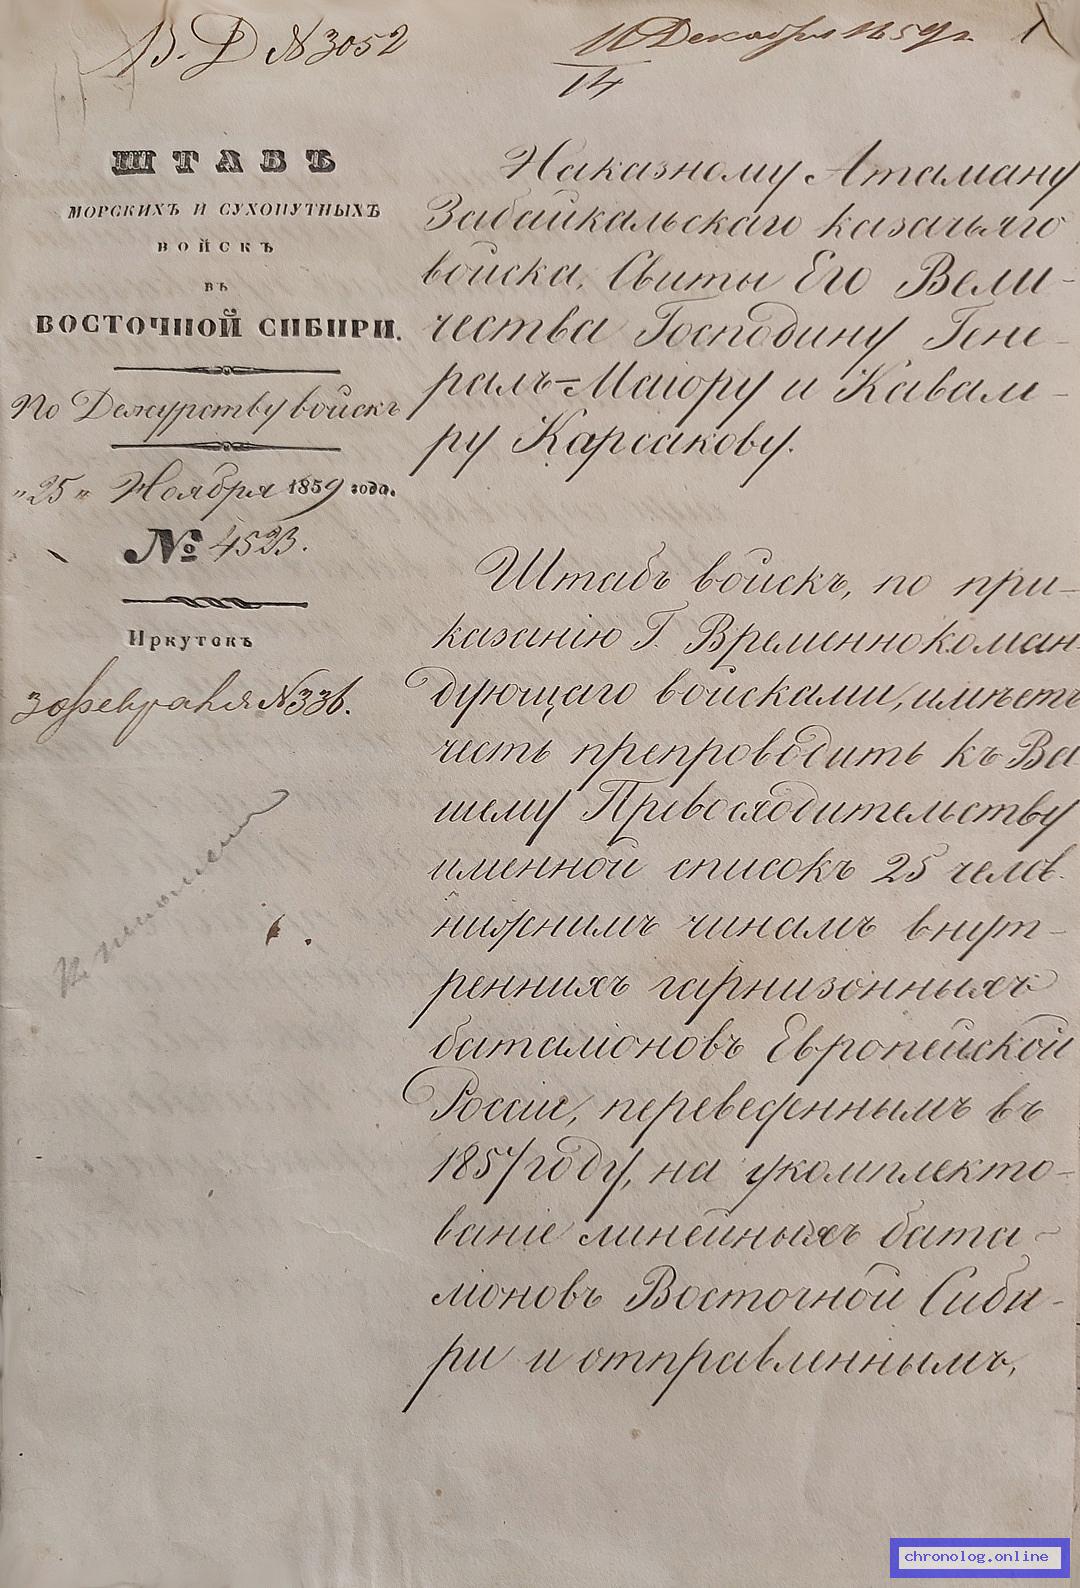 В. Д. № 3052
11 Декабря 1859 г.
14
1
ШТАБЪ
МОРСКИХЪ И СУХОПУТНЫХЪ
ВОЙСКЪ
ВЪ
ВОСТОЧНОЙ СИБИРИ.
По Дежурству войскъ
„25" Ноября 1859 года.
№ 4523.
Иркутскъ
3 февраля № 336.
Наказному Атаману
Забайкальскаго казачьяго
войска, Свиты Его Вели-
чества Господину Гене-
ралъ-Маіору и Кавале-
ру Карсакову.
Штабъ войскъ, по при-
казанію Г. Временнокоман-
дующаго войсками, имѣетъ
честь препроводить къ Ва-
шему Превосходительству
именной списокъ 25 челов.
нижнимъ чинамъ внут-
реннихъ гарнизонныхъ
баталіоновъ Европейской
Россіи, переведеннымъ въ
1857 году, на укомплекто-
ваніе линейныхъ бата-
ліоновъ Восточной Сиби-
ри и отправленнымъ,
chronolog.online